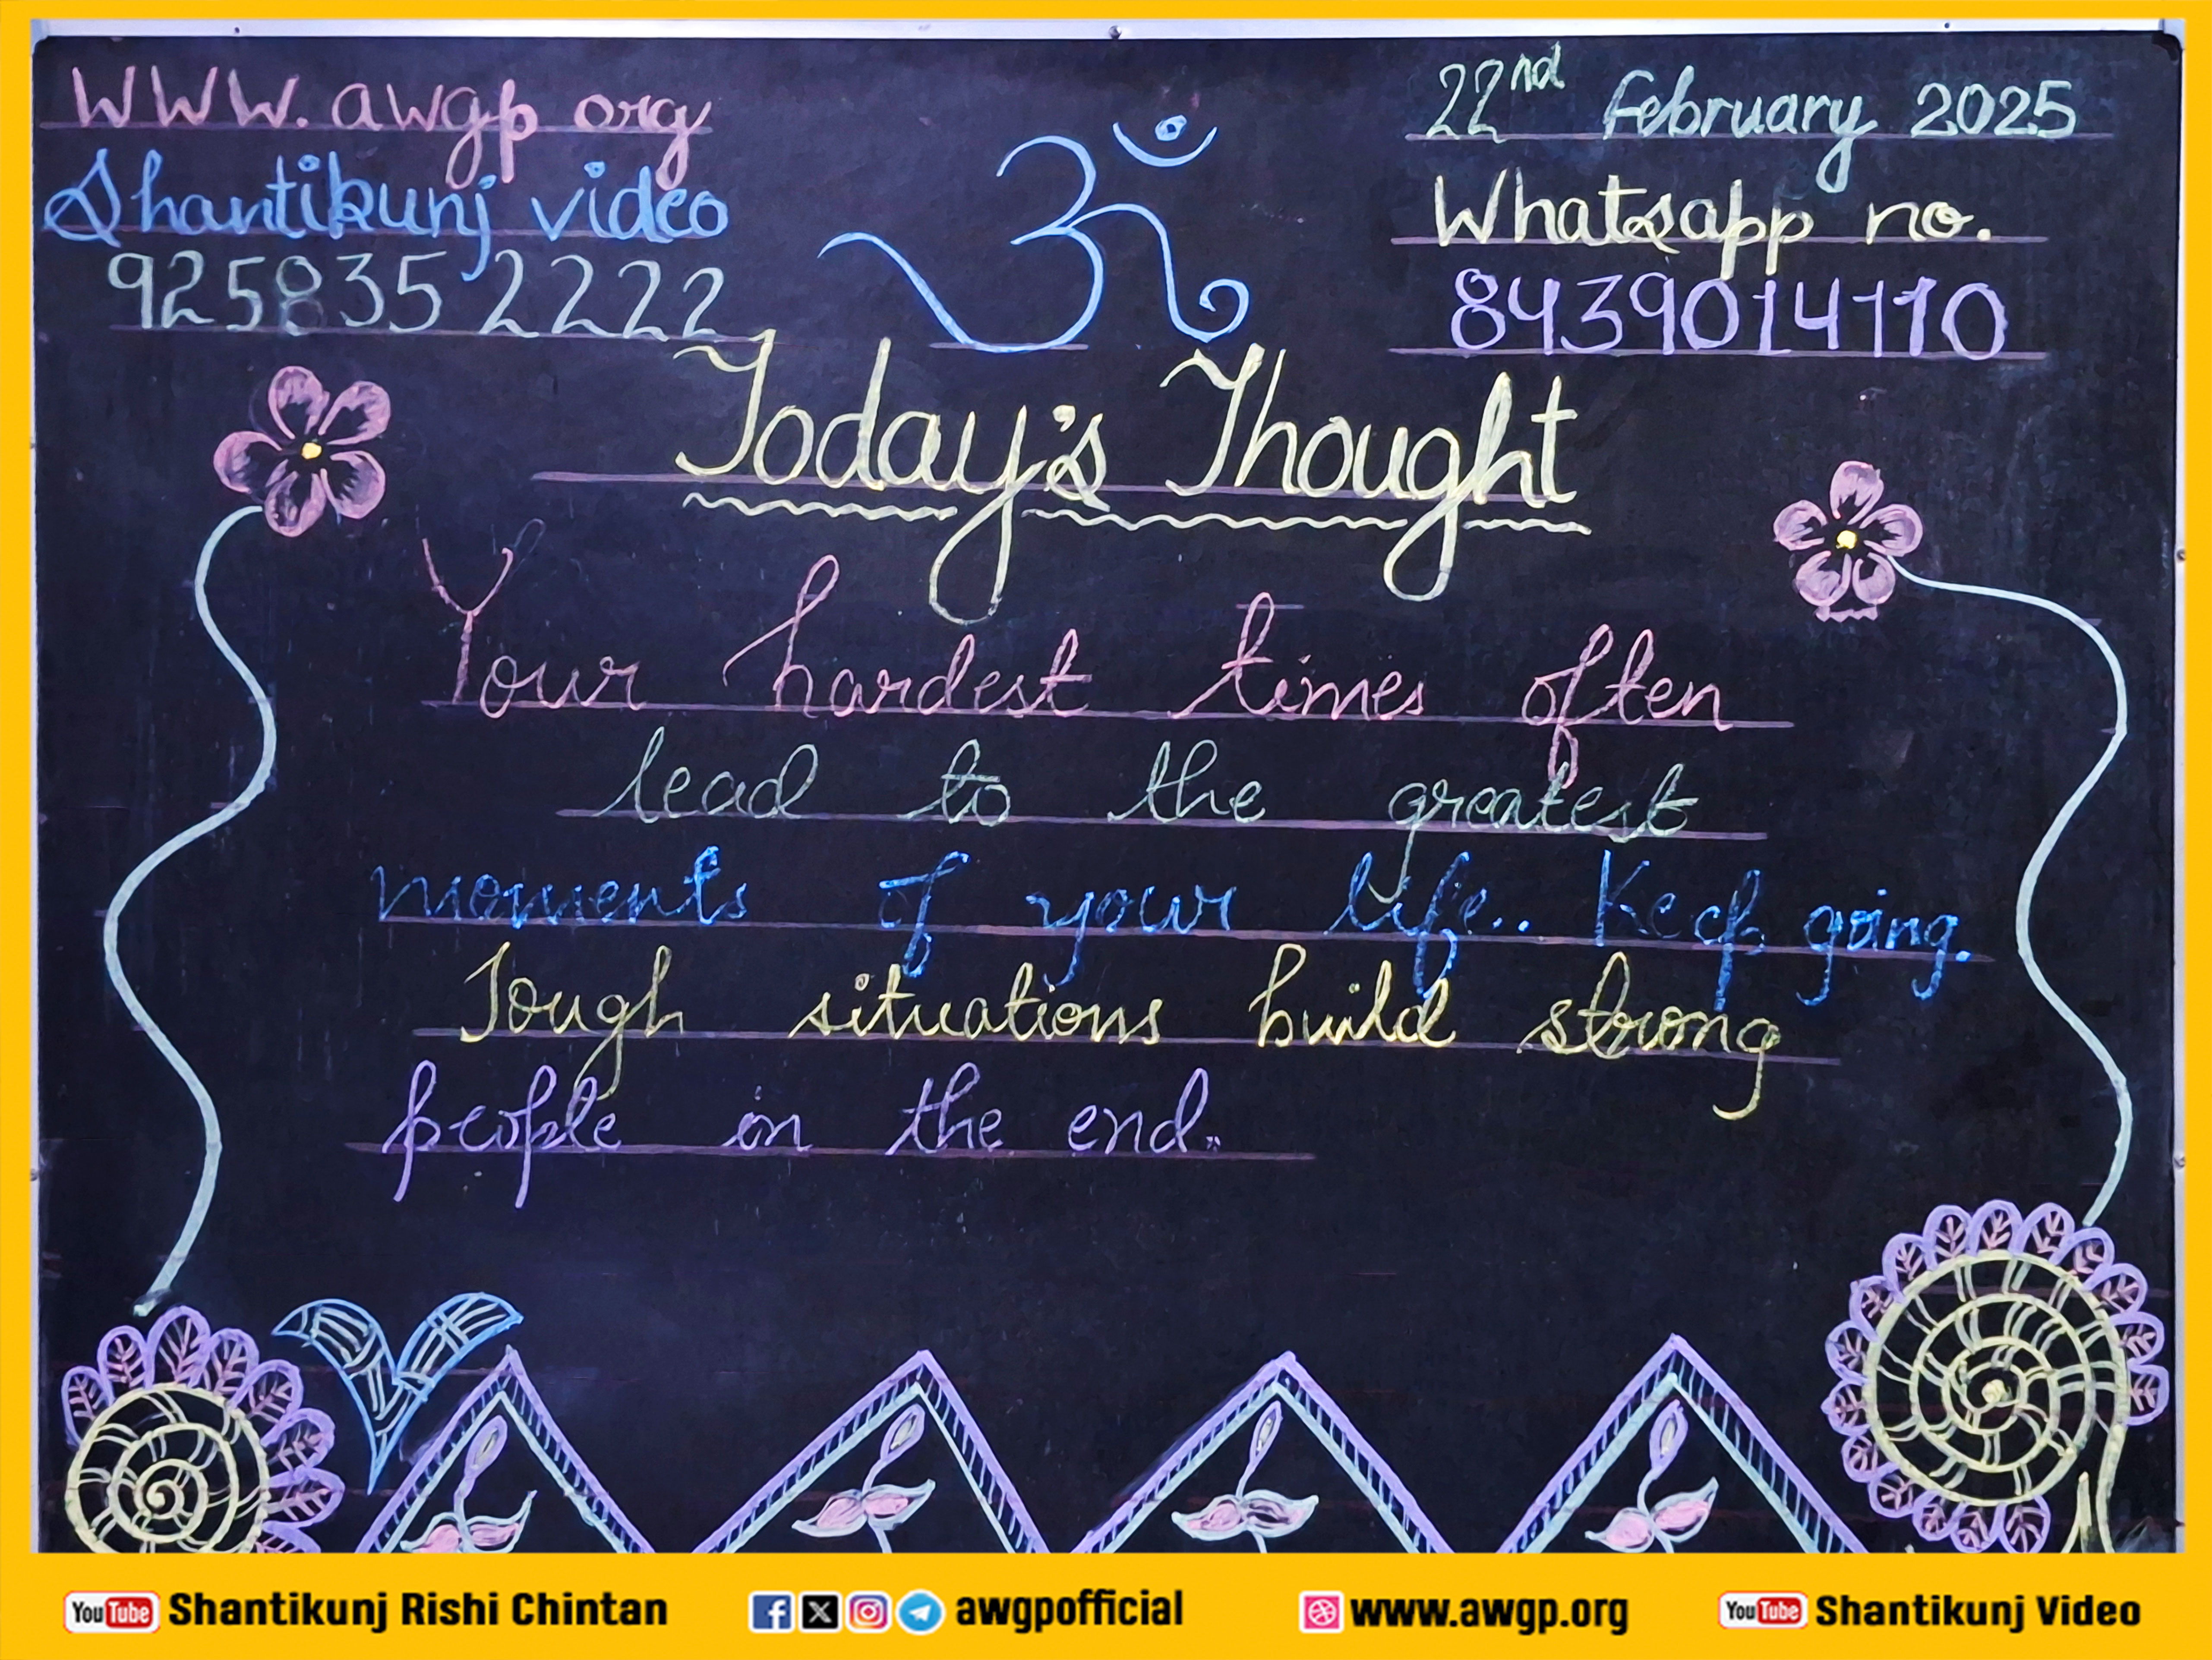 www.awgp org
Shantikunj video
9258352222
ॐ
22nd February 2025
Whatsapp no.
8439014110
Today's Thought
Your hardest times often
lead to the greatest
moments of your life.. Keep going.
Tough situations build strong
people in the end.
YouTube Shantikunj Rishi Chintan
awgpofficial
www.awgp.org
YouTube Shantikunj Video